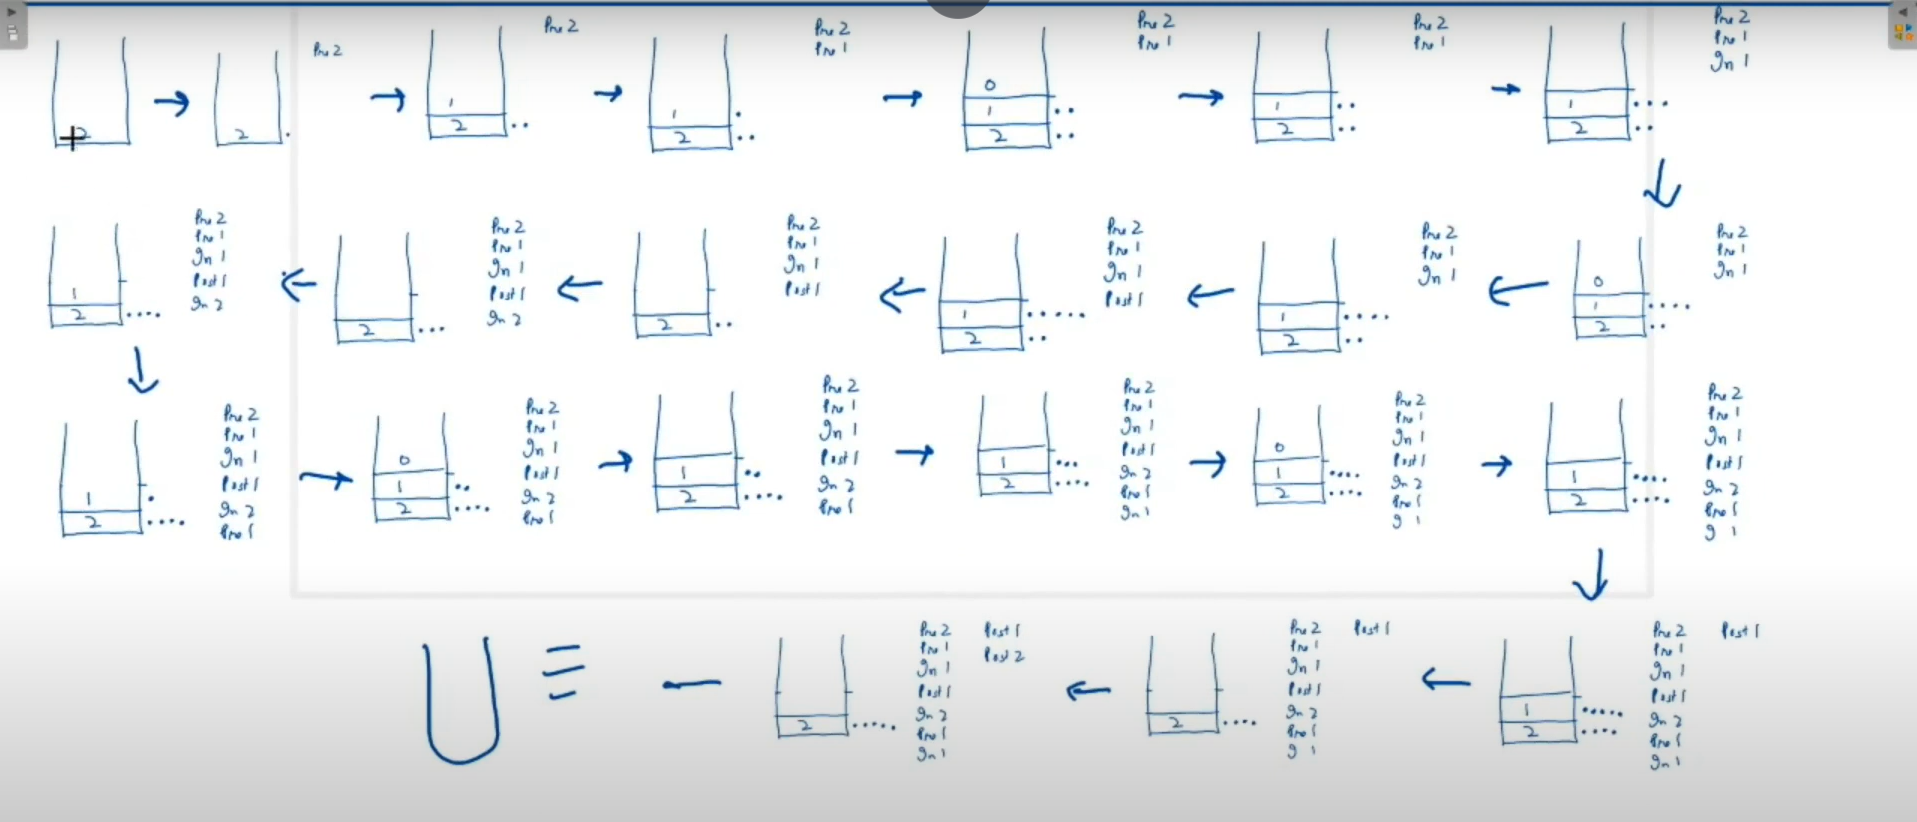 2
2
Pre 2
1
2
Pre 2
1
2
Pre 2
Pre 1
0
1
2
Pre 2
Pre 1
1
2
Pre 2
Pre 1
1
2
Pre 2
Pre 1
In 1
1
2
Pre 2
Pre 1
In 1
Post 1
In 2
2
Pre 2
Pre 1
In 1
Post 1
In 2
2
Pre 2
Pre 1
In 1
Post 1
1
2
Pre 2
Pre 1
In 1
Post 1
1
2
Pre 2
Pre 1
In 1
0
1
2
Pre 2
Pre 1
In 1
1
2
Pre 2
Pre 1
In 1
Post 1
In 2
Pre 1
0
1
2
Pre 2
Pre 1
In 1
Post 1
In 2
Pre 1
1
2
Pre 2
Pre 1
In 1
Post 1
In 2
Pre 1
1
2
Pre 2
Pre 1
In 1
Post 1
In 2
Pre 1
In 1
0
1
2
Pre 2
Pre 1
In 1
Post 1
In 2
Pre 1
I 1
1
2
Pre 2
Pre 1
In 1
Post 1
In 2
Pre 1
I 1
2
Pre 2
Pre 1
In 1
Post 1
In 2
Pre 1
In 1
Post 1
Post 2
2
Pre 2
Pre 1
In 1
Post 1
In 2
Pre 1
I 1
Post 1
1
2
Pre 2
Pre 1
In 1
Post 1
In 2
Pre 1
In 1
Post 1